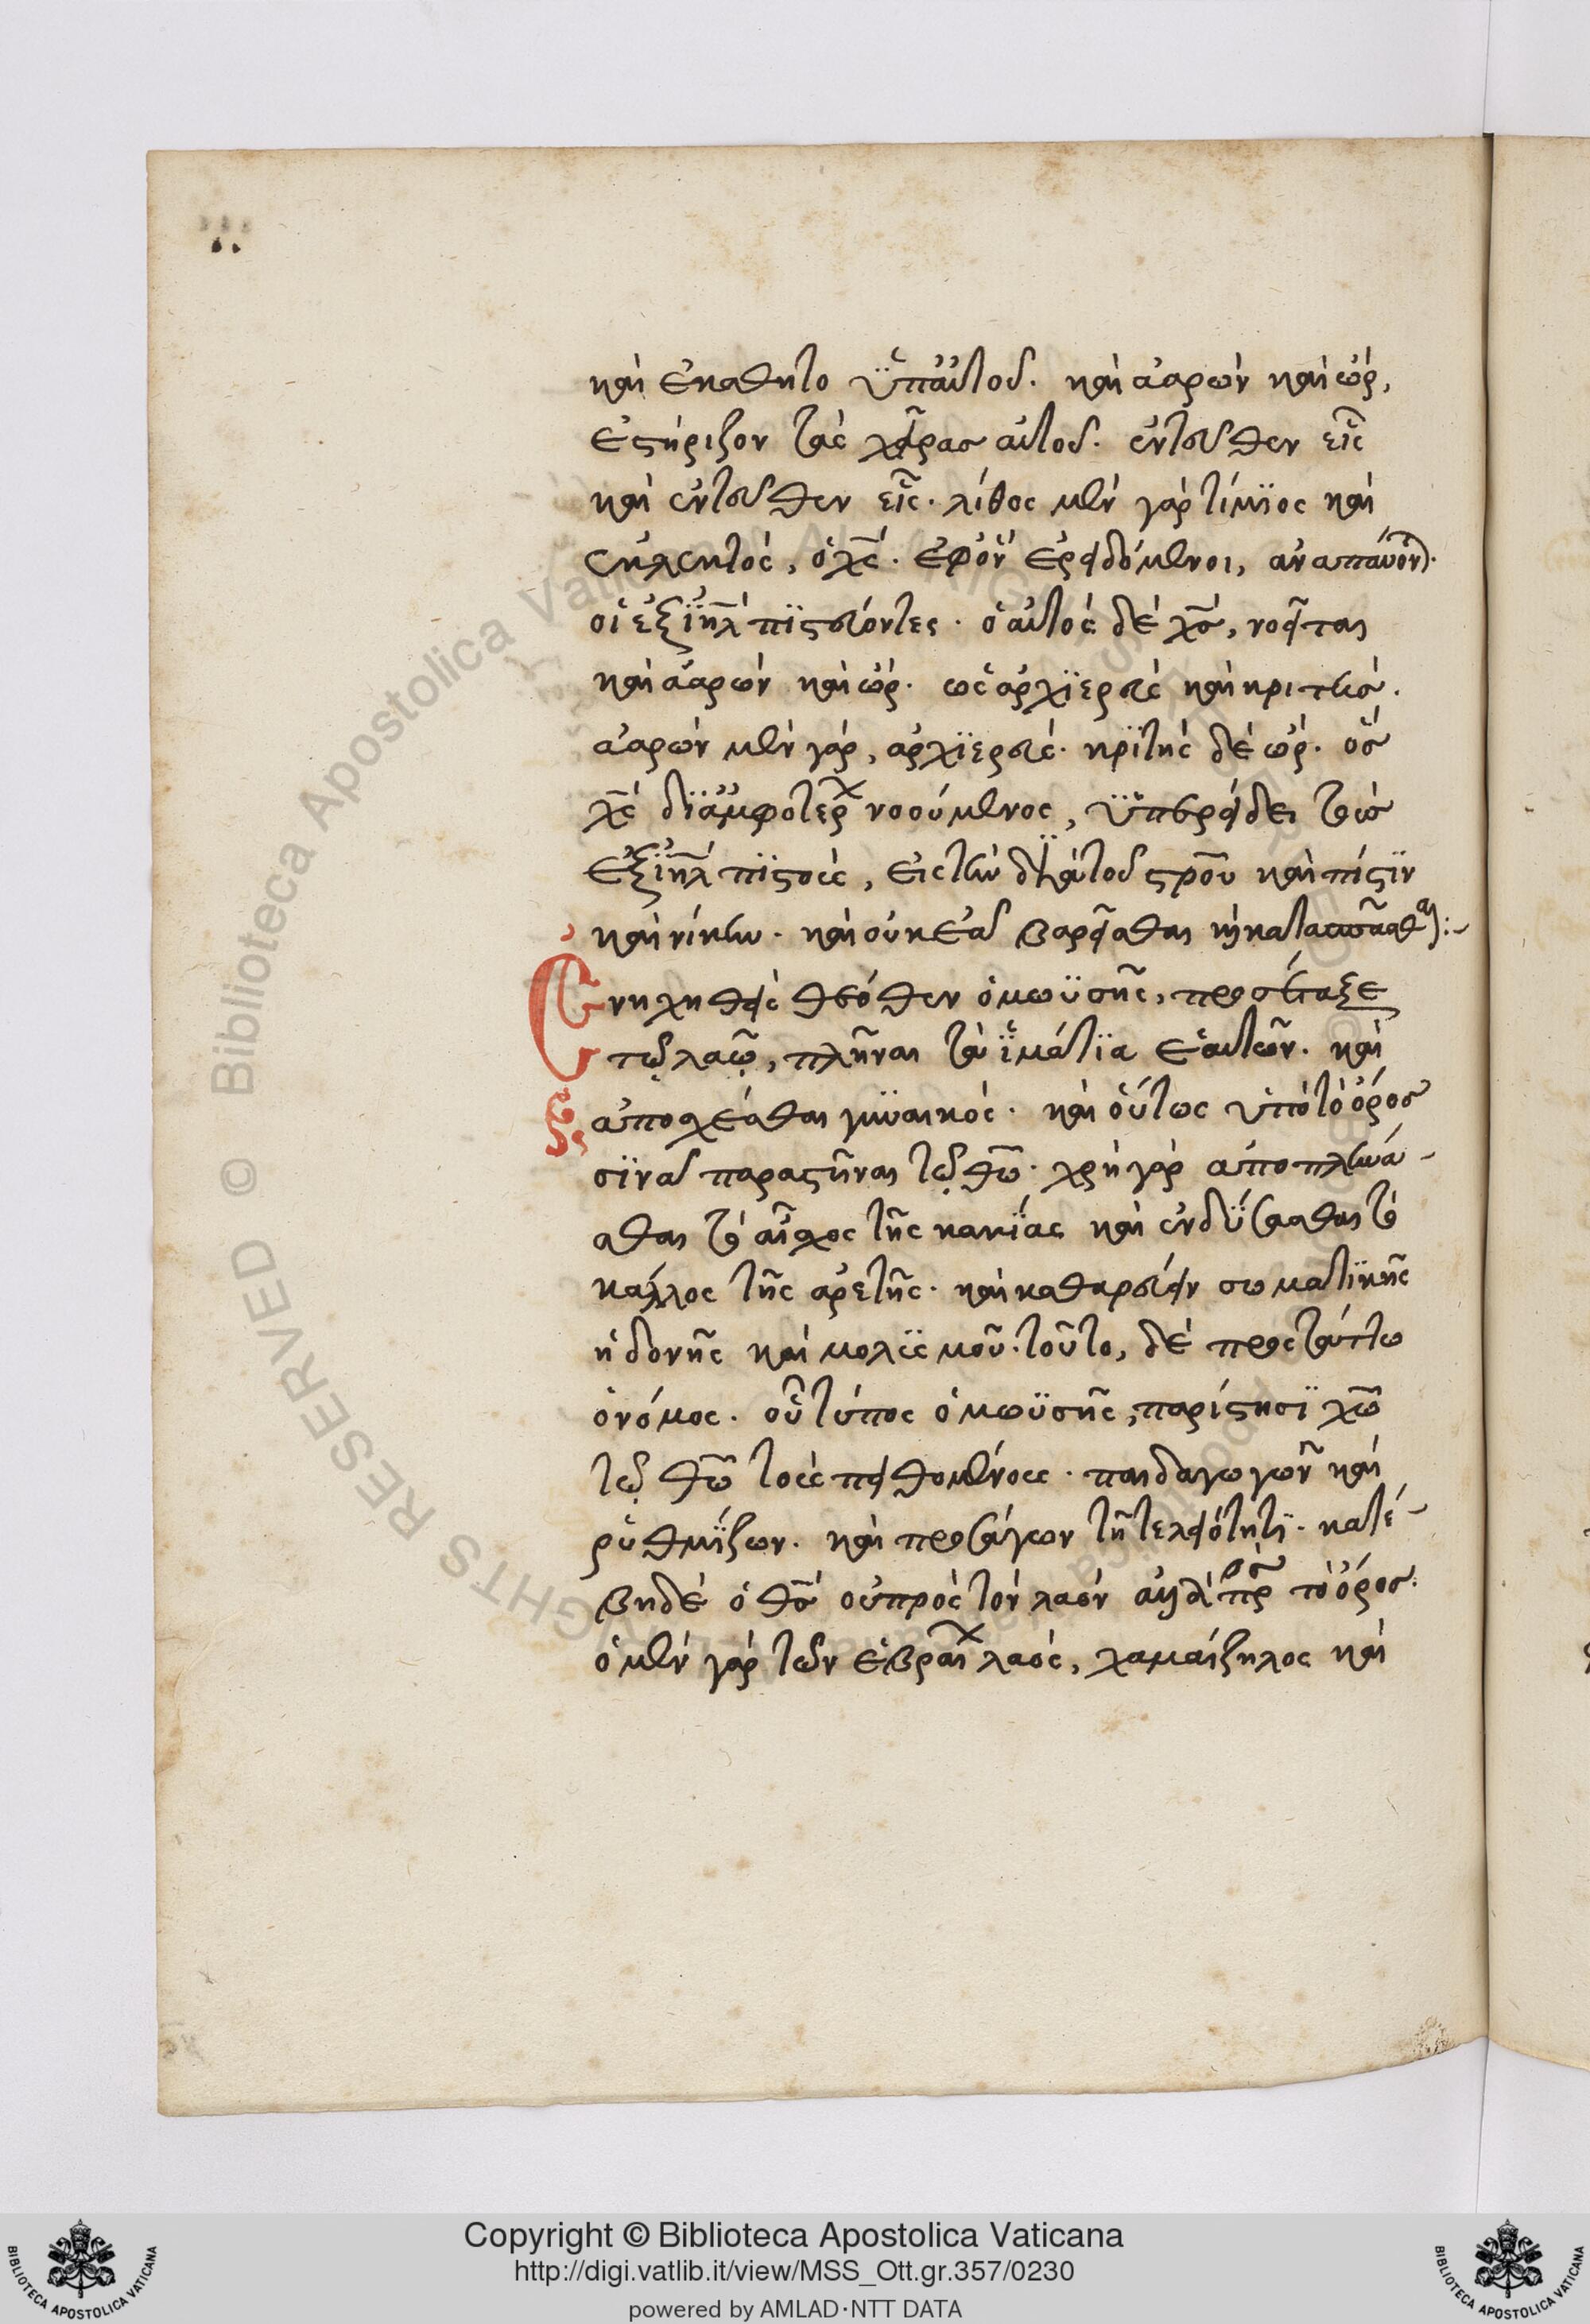 καὶ ἐκάθητο ὑπ' αὐτοῦ. καὶ ἀαρὼν καὶ ὢρ,
ἐστήριζον τὰς χεῖρας αὐτοῦ. ἐντεῦθεν εἷς
καὶ ἐντεῦθεν εἷς. λίθος μὲν γὰρ τίμϊος καὶ
ἐκλεκτὸς, ὁ χς. ἐφ' ὃν ἐρειδόμενοι, ἀναπαύοντ
οἱ ἐξ ϊηλ πϊστεύοντες. ὁ αὐτὸς δὲ χς, νοεῖται
καὶ ἀαρὼν καὶ ὢρ. ὡς ἀρχϊερεὺς καὶ κριτὴς.
ἀαρὼν μὲν γὰρ, ἀρχϊερεὺς. κρϊτὴς δὲ ὢρ. ὃς
χς δϊ' ἀμφοτέρ νοούμενος, ὑπερείδει τοὺς
ἐξ ϊηλ πϊστοὺς, εἰς τὴν δι' αὐτοῦ στρου καὶ πίστϊν
καὶ νίκην. καὶ οὐκ ἐᾶ βαρεῖσθαι ἢ καταςπᾶσθαι:~
Ἐνηχηθεὶς θεόθεν ὁ μωϋσῆς, προσέταξε
τῷ λαῷ, πλῦναι τὰ ἱμάτϊα ἑαυτῶν. καὶ
ἀποσχέσθαι γυναικός. καὶ οὕτως ὑπὸ τὸ ὄρος
σϊνᾶ παραστῆναι τῷ θω. χρὴ γὰρ ἀποπλύνα-
σθαι τὸ αἶσχος τῆς κακίας καὶ ἐνδύσασθαι τὸ
κάλλος τῆς ἀρετῆς. καὶ καθαρεύειν σωματϊκῆς
ἡδονῆς καὶ μολϋσμοῦ. τοῦτο, δὲ προστάττων
ὁ νόμος. οὗ τύπος ὁ μωϋσῆς, παρίστησϊ χω
τῷ θω τοὺς πειθομένους. παιδαγωγῶν καὶ
ῥυθμΐζων. καὶ προσάγων τῆ τελειότητϊ. κατέ-
βη δὲ ὁ θς οὐ πρὸς τὸν λαὸν ἀλλὰ πρ τὸ ὄρος.
ὁ μὲν γὰρ τῶν ἑβραί λαὸς, χαμαίζηλος καὶ
Copyright © Biblioteca Apostolica Vaticana
http://digi.vatlib.it/view/MSS_Ott.gr.357/0230
powered by AMLAD·NTT DATA